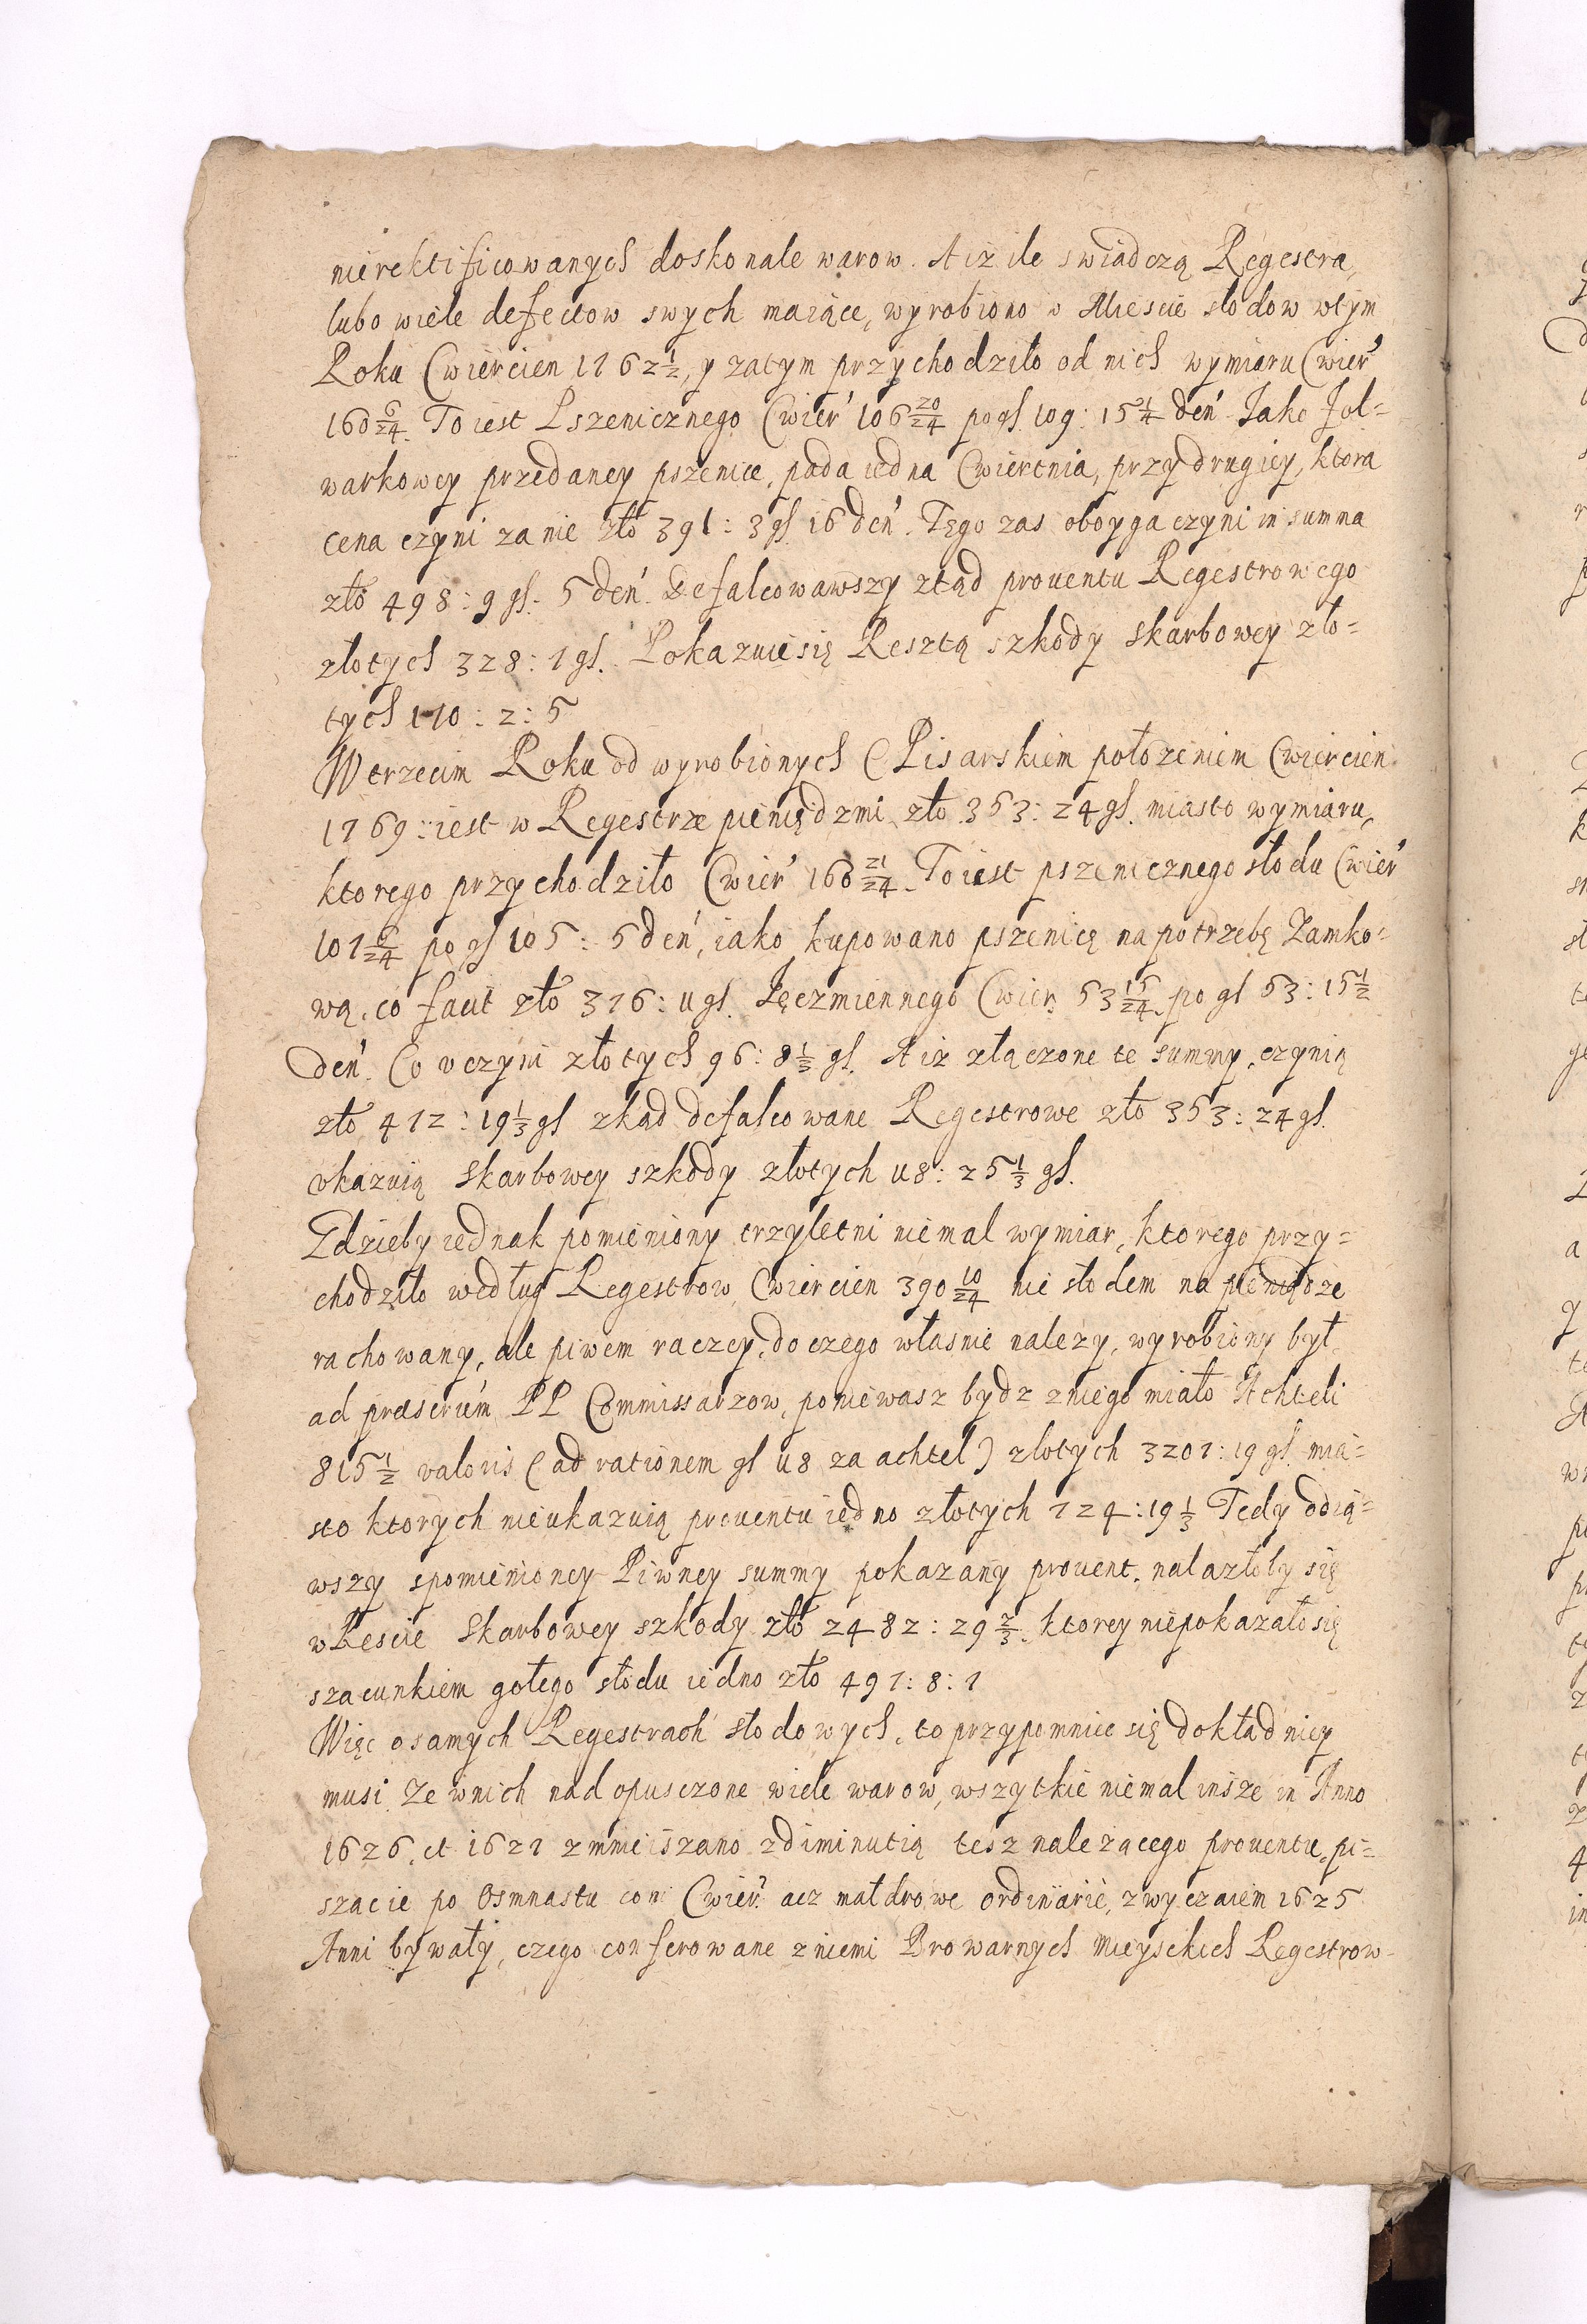 nierektificowanych doskonale warow. A iż ile swiadczą Regestra,
lubo wiele defectow swych maiące, wyrobiono w Miescie słodow wtym
Roku Cwiercien 1762½, y zatym przychodziło od nich wymiaru Cwier
160 6/24. To iest Pszenicznego Cwier 106 20/24 po gł 109: 15¼ den Jako fol=
warkowey przedaney pszenice, pada iedna Cwiertnia, przy drugiey, ktora
cena czyni za nie zło 391: 3 gł 16 den. Tego zas oboyga czyni in summa
zło 498: 9 gł: 5 den. Defalcowawszy ztąd prouentu Regestrowego
złotych 328: 7 gł. Pokazuie się Resztą szkody skarbowey zło=
tych 170: 2: 5
W trzecim Roku od wyrobionych (Pisarskiem położeniem Cwiercien
1769: iest w Regestrze pieniędzmi zło 353: 24 gł. miasto wymiaru,
ktorego przychodziło Cwier 160 21/24. To iest pszenicznego słodu Cwier
107 6/24 po gł 105: 5 den, iako kupowano pszenicę na potrzebę Zamko=
wą, co faut zło 376: 11 gł. Jęczmiennego Cwier. 53 15/24. po gł 53: 15½
den. Co vczyni złotych 96: 8⅓ gł. A iż złączone te summy, czynią
zło 472: 19⅓ gł zkąd defalcowane Regestrowe zło 353: 24 gł.
vkazuią skarbowey szkody złotych 118: 25⅓ gł.
Gdzieby iednak pomieniony trzyletni niemal wymiar, ktorego przy=
chodziło według Regestrow Cwiercien 390 10/24 nie słodem na pieniądze
rachowany, ale piwem raczey, do czego własnie należy, wyrobiony był,
ad praescrium PP Commissarzow, poniewasz bydz zniego miało Achteli
815½ valoris (ad rationem gł 118 za achtel) złotych 3207: 19 gł. mia=
sto ktorych nieukazuią prouentu iedno złotych 724: 19⅓ Tedy odią=
wszy spomienioney Piwney summy pokazany prouent, nalazłoby się
w Rescie Skarbowey szkody zło 2482: 29⅔. ktorey niepokazało się
szacunkiem gołego słodu iedno zło 497: 8: 1
Więc o samych Regestrach słodowych, to przypomniec się dokładniey
musi, Ze wnich nad opusczone wiele warow, wszytkie niemal insze in Anno
1626. et 1627 zmnieiszano zdiminutią tesz należącego prouentu, pi=
szacie po Osmnastu com Cwier. acz małdrowe ordinarie, zwyczaiem 1625
Anni bywały, czego conferowane zniemi Browarnych Mieyskich Regestrow